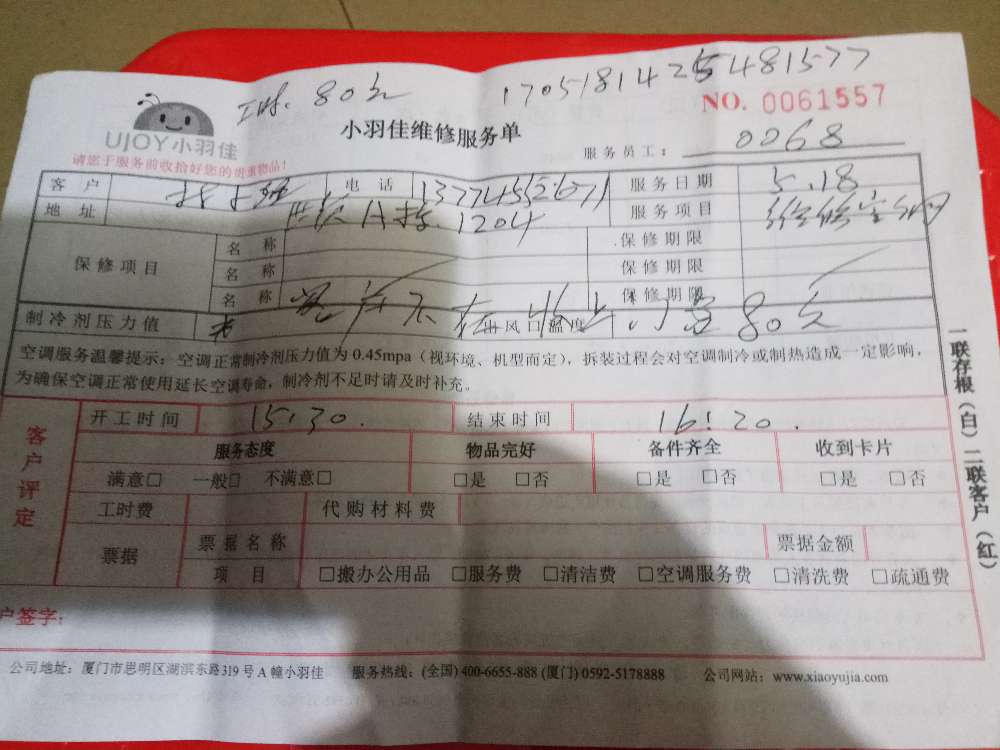 工时. 80元
170518142548 1577
NO. 0061557
UJOY小羽佳
小羽佳维修服务单
请您于服务前收拾好您的贵重物品!
服务员工: 0068
客 户 电 话 服务日期 5.18
地 址 A栋.1204 服务项目 维修空调
保修项目 名 称 保修期限
名 称 保修期限
名 称 保修期限
制冷剂压力值 出风口温度 80元
空调服务温馨提示: 空调正常制冷剂压力值为0.45mpa(视环境、机型而定), 拆装过程会对空调制冷或制热造成一定影响,
为确保空调正常使用延长空调寿命, 制冷剂不足时请及时补充。
客户评定
开工时间 15:30. 结束时间 16:20.
服务态度 物品完好 备件齐全 收到卡片
满意□ 一般□ 不满意□ □是 □否 □是 □否 □是 □否
工时费 代购材料费
票据 票据名称 票据金额
项 目 □搬办公用品 □服务费 □清洁费 □空调服务费 □清洗费 □疏通费
户签字:
公司地址: 厦门市思明区湖滨东路319号A幢小羽佳 服务热线: (全国) 400-6655-888 (厦门) 0592-5178888 公司网站: www.xiaoyujia.com
一联存根(白)二联客户(红)